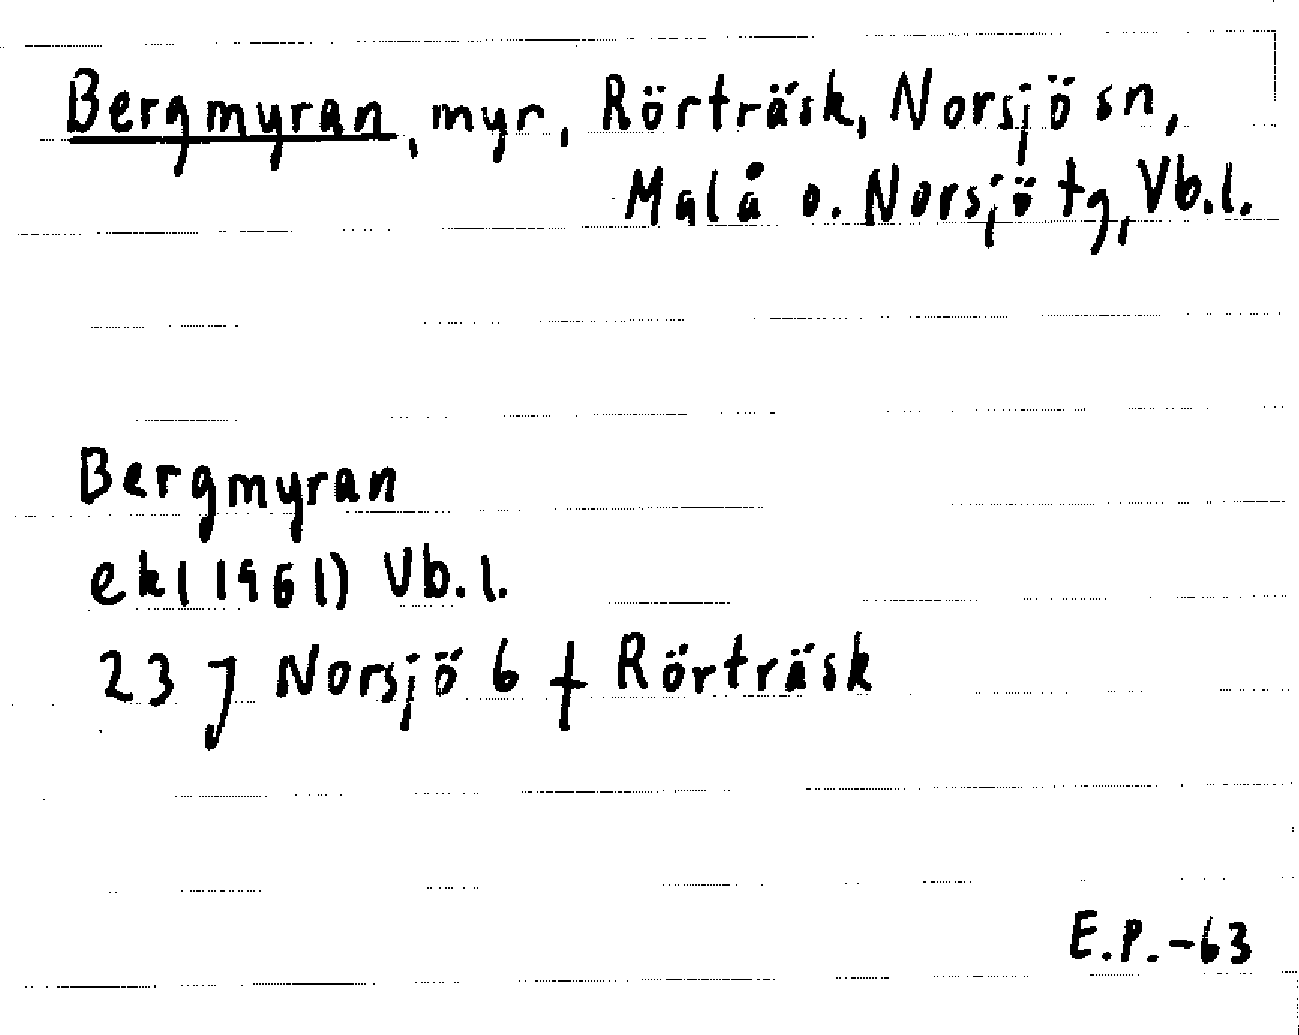 Bergmyran, myr, Rörträsk, Norsjö sn,
Malå o. Norsjö tg, Vb.l.
Bergmyran
ek(1961) Vb.l.
23 J Norsjö 6 f Rörträsk
E.P.-63